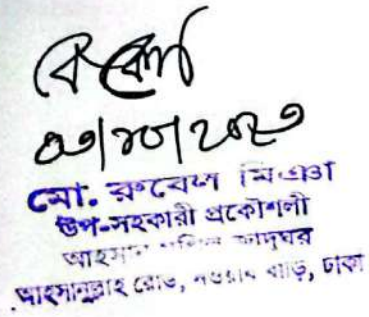 মো. রুবেল মিঞা
উপ-সহকারী প্রকৌশলী
আহসান মঞ্জিল জাদুঘর
আহসানুল্লাহ রোড, নওয়াব বাড়ি, ঢাকা